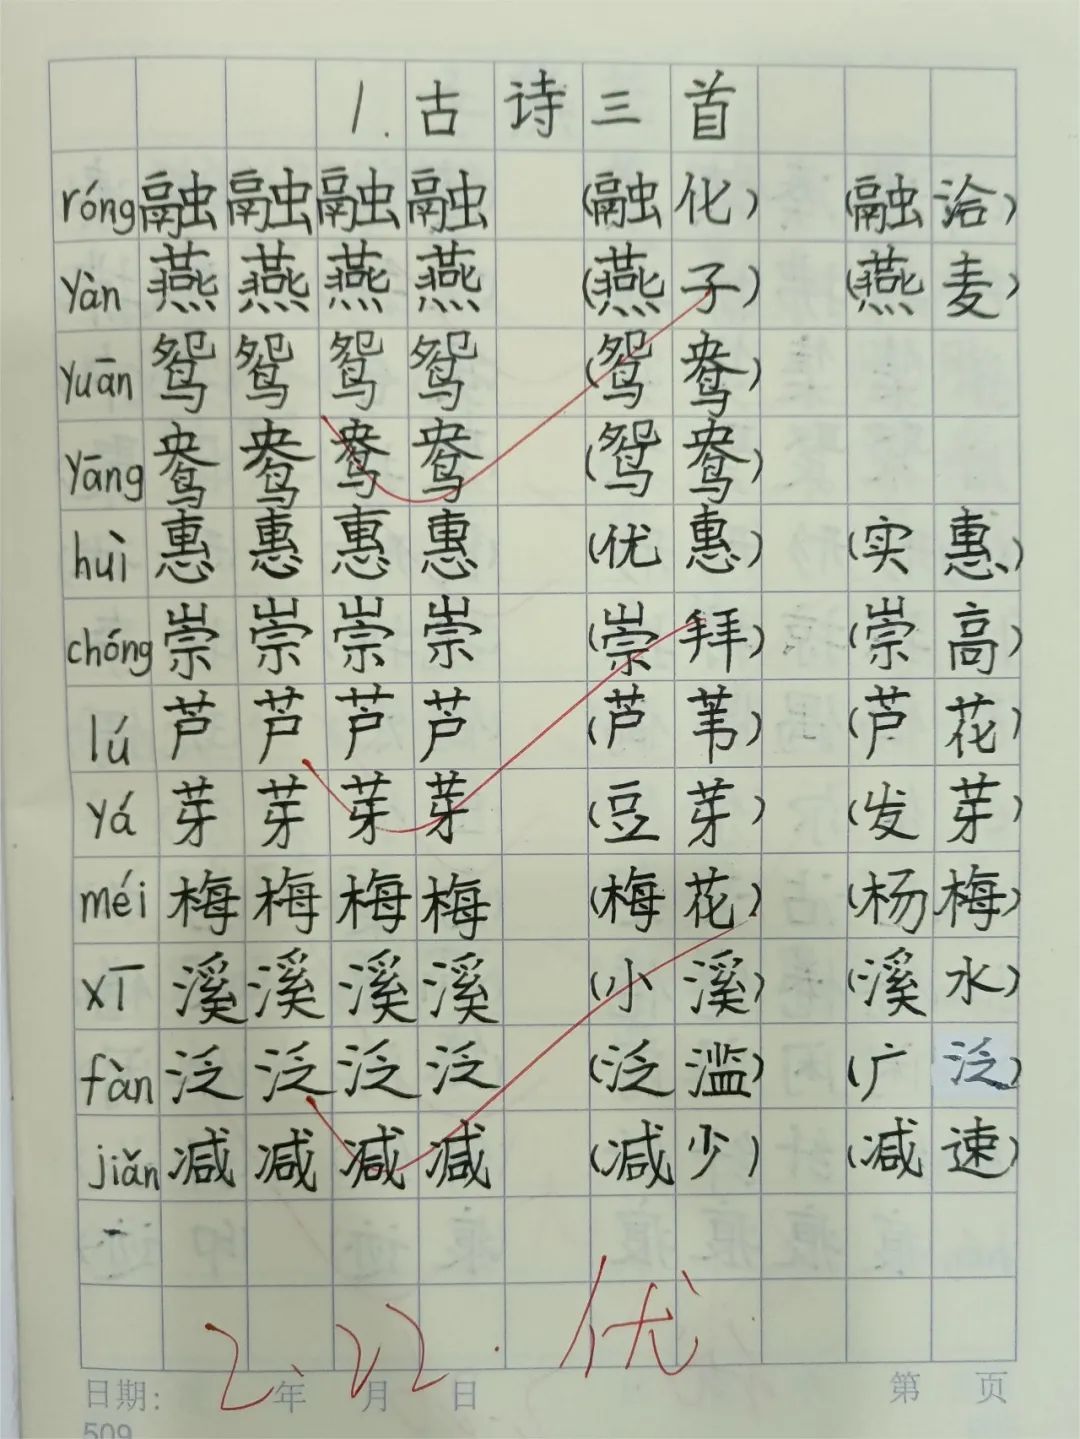 1. 古诗三首
róng 融融融融 (融化) (融洽)
yàn 燕燕燕燕 (燕子) (燕麦)
yuān 鸳鸳鸳鸳 (鸳鸯)
yāng 鸯鸯鸯鸯 (鸳鸯)
huì 惠惠惠惠 (优惠) (实惠)
chóng 崇崇崇崇 (崇拜) (崇高)
lú 芦芦芦芦 (芦苇) (芦花)
yá 芽芽芽芽 (豆芽) (发芽)
méi 梅梅梅梅 (梅花) (杨梅)
xī 溪溪溪溪 (小溪) (溪水)
fàn 泛泛泛泛 (泛滥) (广泛)
jiǎn 减减减减 (减少) (减速)
2.22. 优
日期: 年 月 日 第 页
509